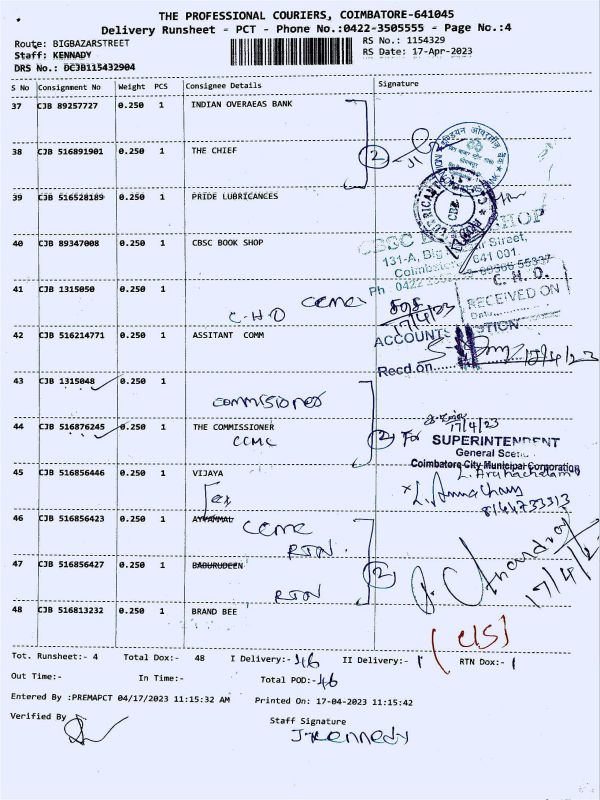 THE PROFESSIONAL COURIERS, COIMBATORE-641045
Delivery Runsheet - PCT - Phone No.:0422-3505555 - Page No.:4
Route: BIGBAZARSTREET
RS No.: 1154329
Staff: KENNADY
RS Date: 17-Apr-2023
DRS No.: DCJB115432904
S No Consignment No Weight PCS Consignee Details Signature
37 CJB 89257727 0.250 1 INDIAN OVERAEAS BANK
38 CJB 516891901 0.250 1 THE CHIEF
2
39 CJB 516528189 0.250 1 PRIDE LUBRICANCES
40 CJB 89347008 0.250 1 CBSC BOOK SHOP
CBSC SHOP
131-A, Big Street,
Coimbatore 641 001
Ph : 0422
41 CJB 1315050 0.250 1
CCMC
C.H.O
C. H. O.
RECEIVED ON
Date
17/4/23
42 CJB 516214771 0.250 1 ASSITANT COMM
ACCOUNTS SECTION
Recd.on
17/4/23
43 CJB 1315048 0.250 1
commissioner
44 CJB 516876245 0.250 1 THE COMMISSIONER
CCMC
2
17/4/23
For
SUPERINTENDENT
Coimbatore City Municipal Corporation
45 CJB 516856446 0.250 1 VIJAYA
L. Arunachalam
8144733313
46 CJB 516856423 0.250 1 AYYAMMAL
CCMC
RTN.
47 CJB 516856427 0.250 1 BADURUDEEN
RTN
2
17/4/2
48 CJB 516813232 0.250 1 BRAND BEE
Tot. Runsheet:- 4 Total Dox:- 48 I Delivery:- 46 II Delivery:- 1 RTN Dox:- 1
Out Time:- In Time:- Total POD:- 46
Entered By :PREMAPCT 04/17/2023 11:15:32 AM Printed On: 17-04-2023 11:15:42
Verified By
Staff Signature
J. Kennedy